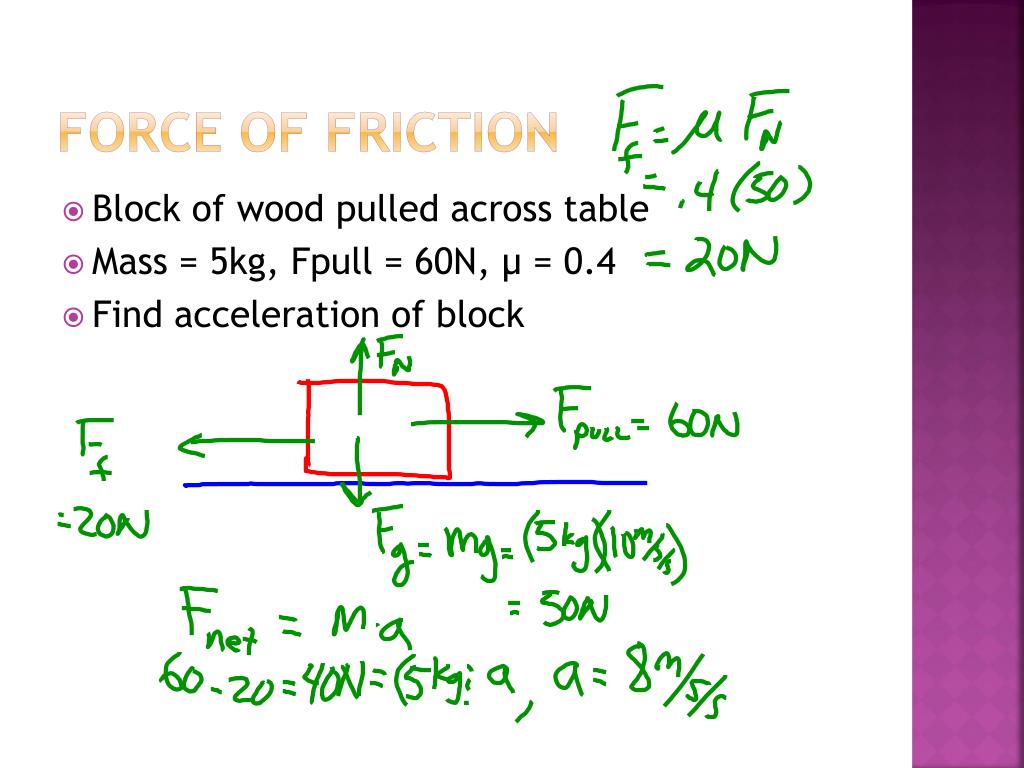 FORCE OF FRICTION
F_f = μ F_N
= .4 (50)
= 20N
Block of wood pulled across table
Mass = 5kg, Fpull = 60N, μ = 0.4
Find acceleration of block
F_N
F_pull = 60N
F_f
= 20N
F_g = mg = (5kg)(10 m/s/s)
= 50N
F_net = m·a
60 - 20 = 40N = (5kg) a, a = 8 m/s/s